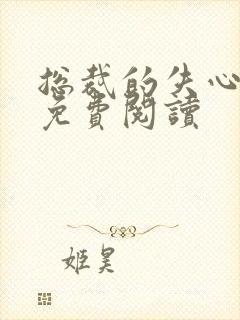 总裁的失心
免費閱讀
姬昊